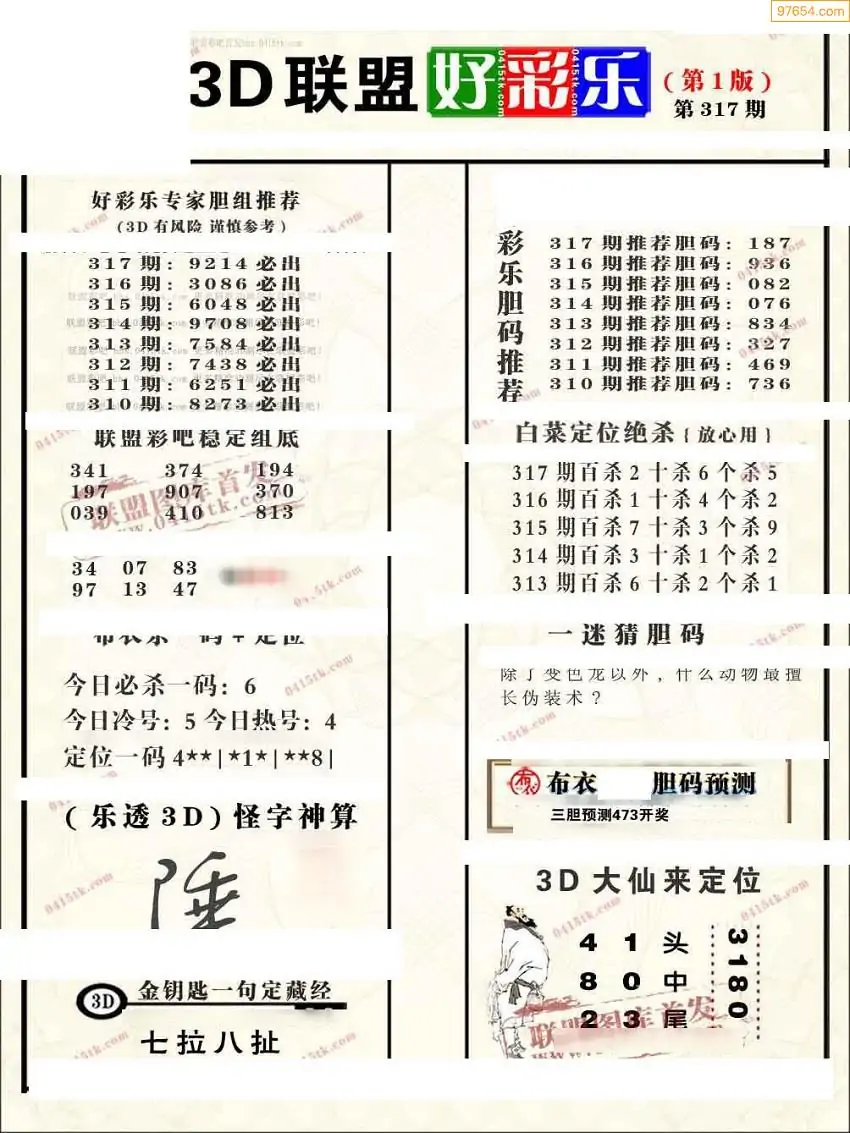 97654.com
3D联盟好彩乐
(第1版)
第317期
好彩乐专家胆组推荐
(3D有风险 谨慎参考)
317期: 9214必出
316期: 3086必出
315期: 6048必出
314期: 9708必出
313期: 7584必出
312期: 7438必出
311期: 6251必出
310期: 8273必出
联盟彩吧稳定组底
341 374 194
197 907 370
039 410 813
联盟图库首发
34 07 83
97 13 47
今日必杀一码: 6
今日冷号: 5 今日热号: 4
定位一码4**|*1*|**8|
(乐透3D)怪字神算
3D 金钥匙一句定藏经
七拉八扯
彩乐胆码推荐
317期推荐胆码: 187
316期推荐胆码: 936
315期推荐胆码: 082
314期推荐胆码: 076
313期推荐胆码: 834
312期推荐胆码: 327
311期推荐胆码: 469
310期推荐胆码: 736
白菜定位绝杀{放心用}
317期百杀2十杀6个杀5
316期百杀1十杀4个杀2
315期百杀7十杀3个杀9
314期百杀3十杀1个杀2
313期百杀6十杀2个杀1
一迷猜胆码
除了变色龙以外，什么动物最擅
长伪装术？
布衣 胆码预测
三胆预测473开奖
3D大仙来定位
4 1 头
8 0 中
2 3 尾
3180
联盟图库首发
0415tk.com